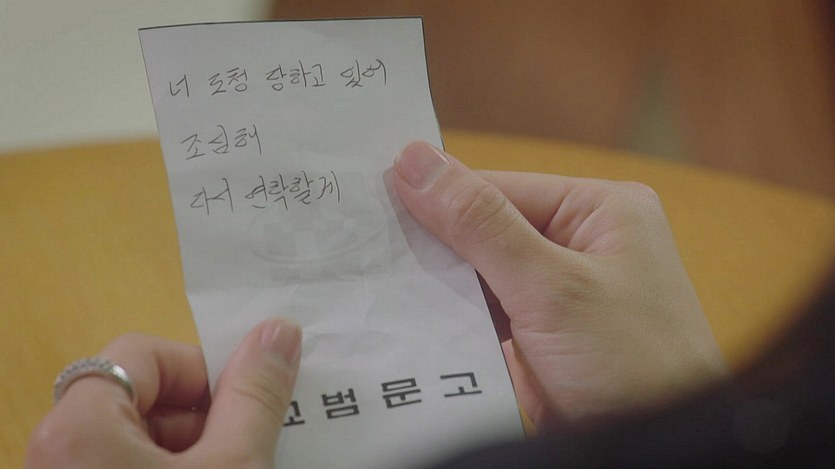 너 도청 당하고 있어
조심해
다시 연락할게
교범문고